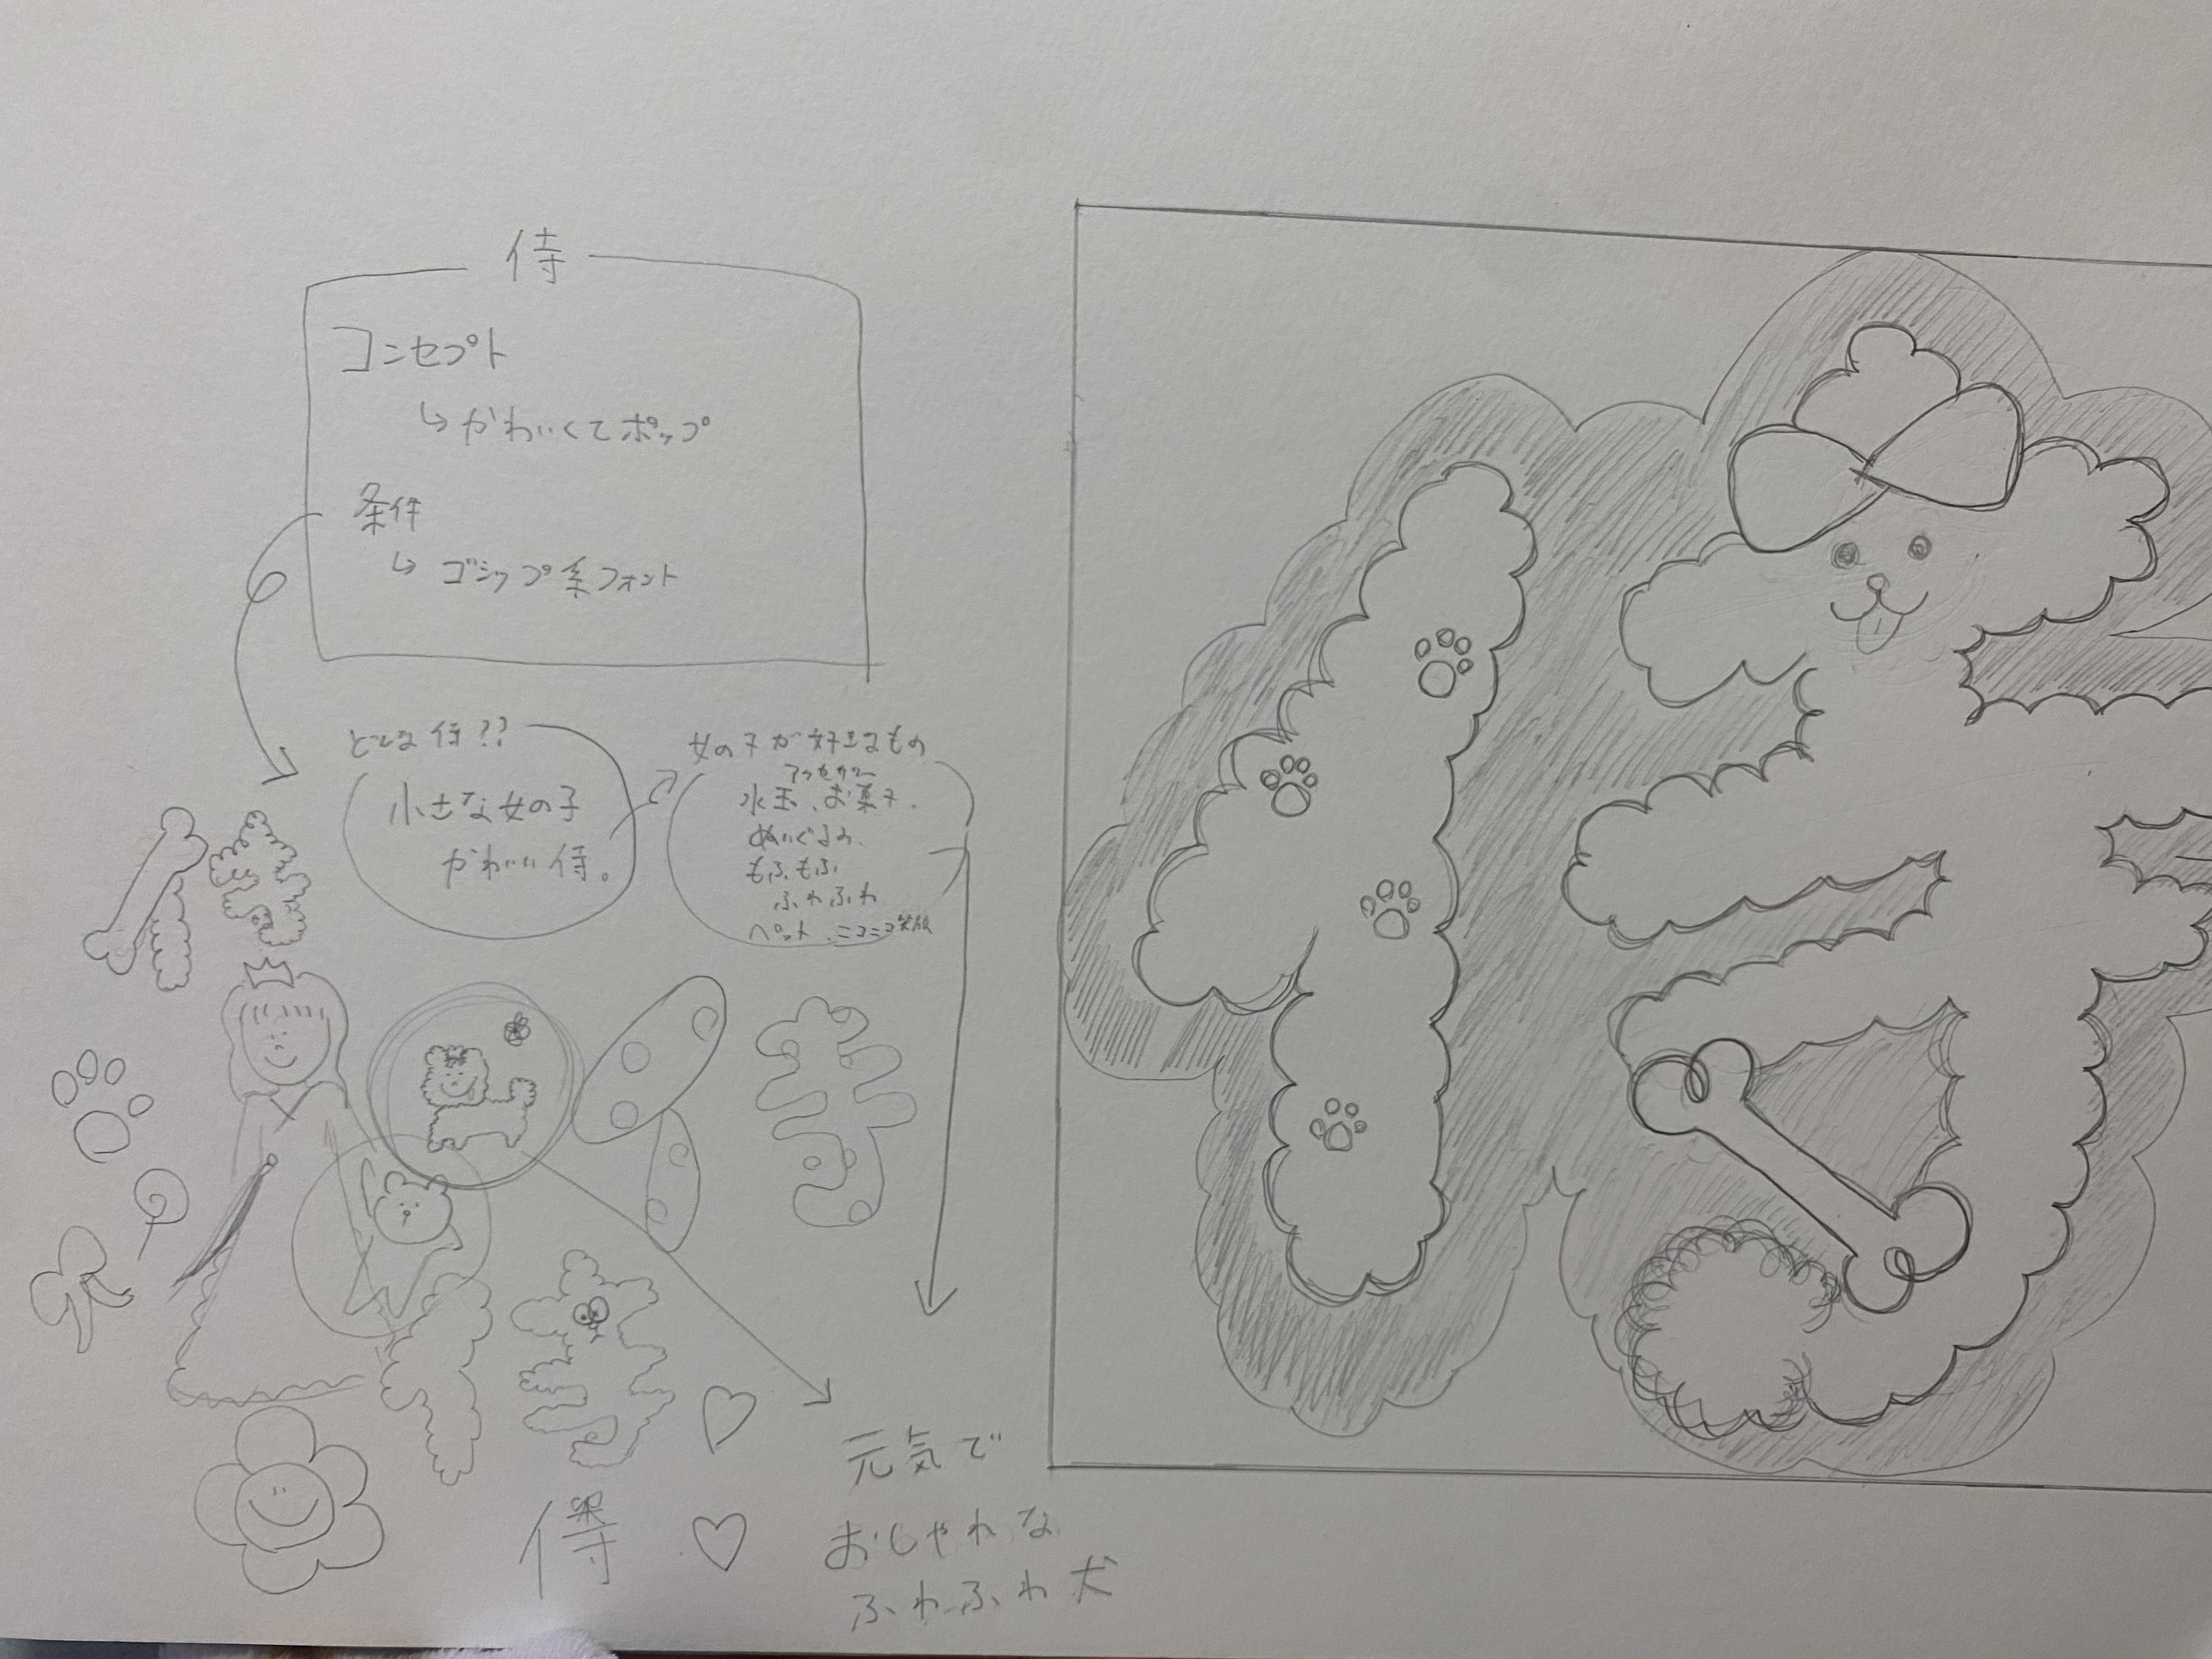 侍
コンセプト
↳かわいくてポップ
条件
↳ゴシック系フォント
どんな侍??
小さな女の子
かわいい侍。
女の子が好きなもの
アクセサリー
水玉、お菓子、
ぬいぐるみ、
もふもふ
ふわふわ
ペット
侍
元気で
おしゃれな
ふわふわ犬